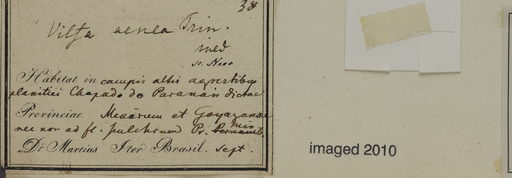 38
Vilfa aenea Trin.
ined
sc. Nees
Habitat in campis altis agrestibus
planitiei Chapado do Paranan dictae
Provinciae Minarum et Goyazanae
nec non ad fl. Pr. Min
Dr Martius Iter Brasil. Sept.
imaged 2010